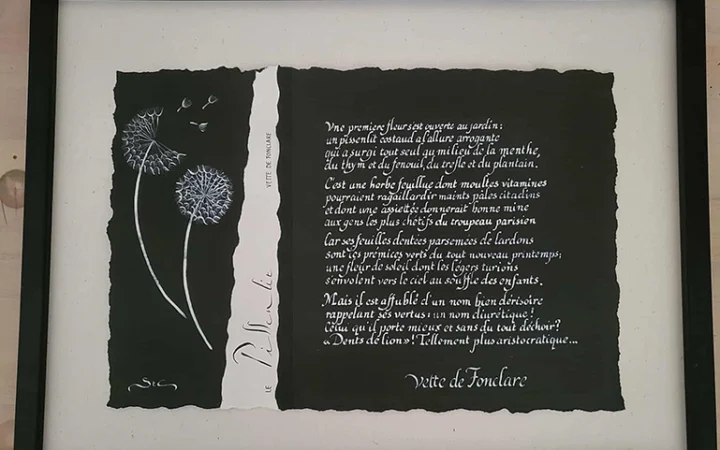 Une premiere fleur s'est ouverte au jardin;
un pissenlit costaud à l'allure arrogante
qui a surgi tout seul au milieu de la menthe,
du thym et du fenouil, du trefle et du plantain.
C'est une herbe feuillue dont moultes vitamines
pourraient ragaillardir maints pâles citadins
et dont une assiettée donnerait bonne mine
aux gens les plus chétifs du troupeau parisien
Car ses feuilles dentées parsemées de lardons
sont les prémices verts du tout nouveau printemps;
une fleur de soleil dont les légers turions
s'envolent vers le ciel au souffle des enfants.
Mais il est affublé d'un nom bien dérisoire
rappelant ses vertus: un nom diurétique!
Celui qu'il porte mieux et sans du tout déchoir?
«Dents de lion»! Tellement plus aristocratique...
Vette de Fonclare
LE Pissenlit
VETTE DE FONCLARE